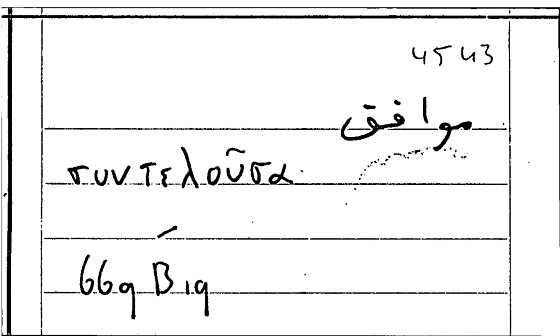 4543
موافق
συντελοῦσα
669 B 19